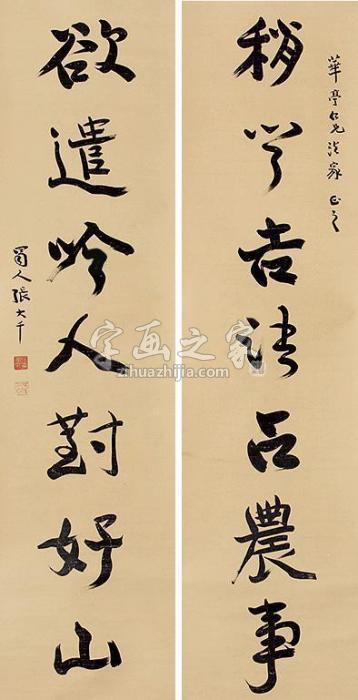 華亭仁兄法家正之
稍吉占農事
欲遣吟人對好山
蜀人張大千
字画之家
zihuazhijia.com